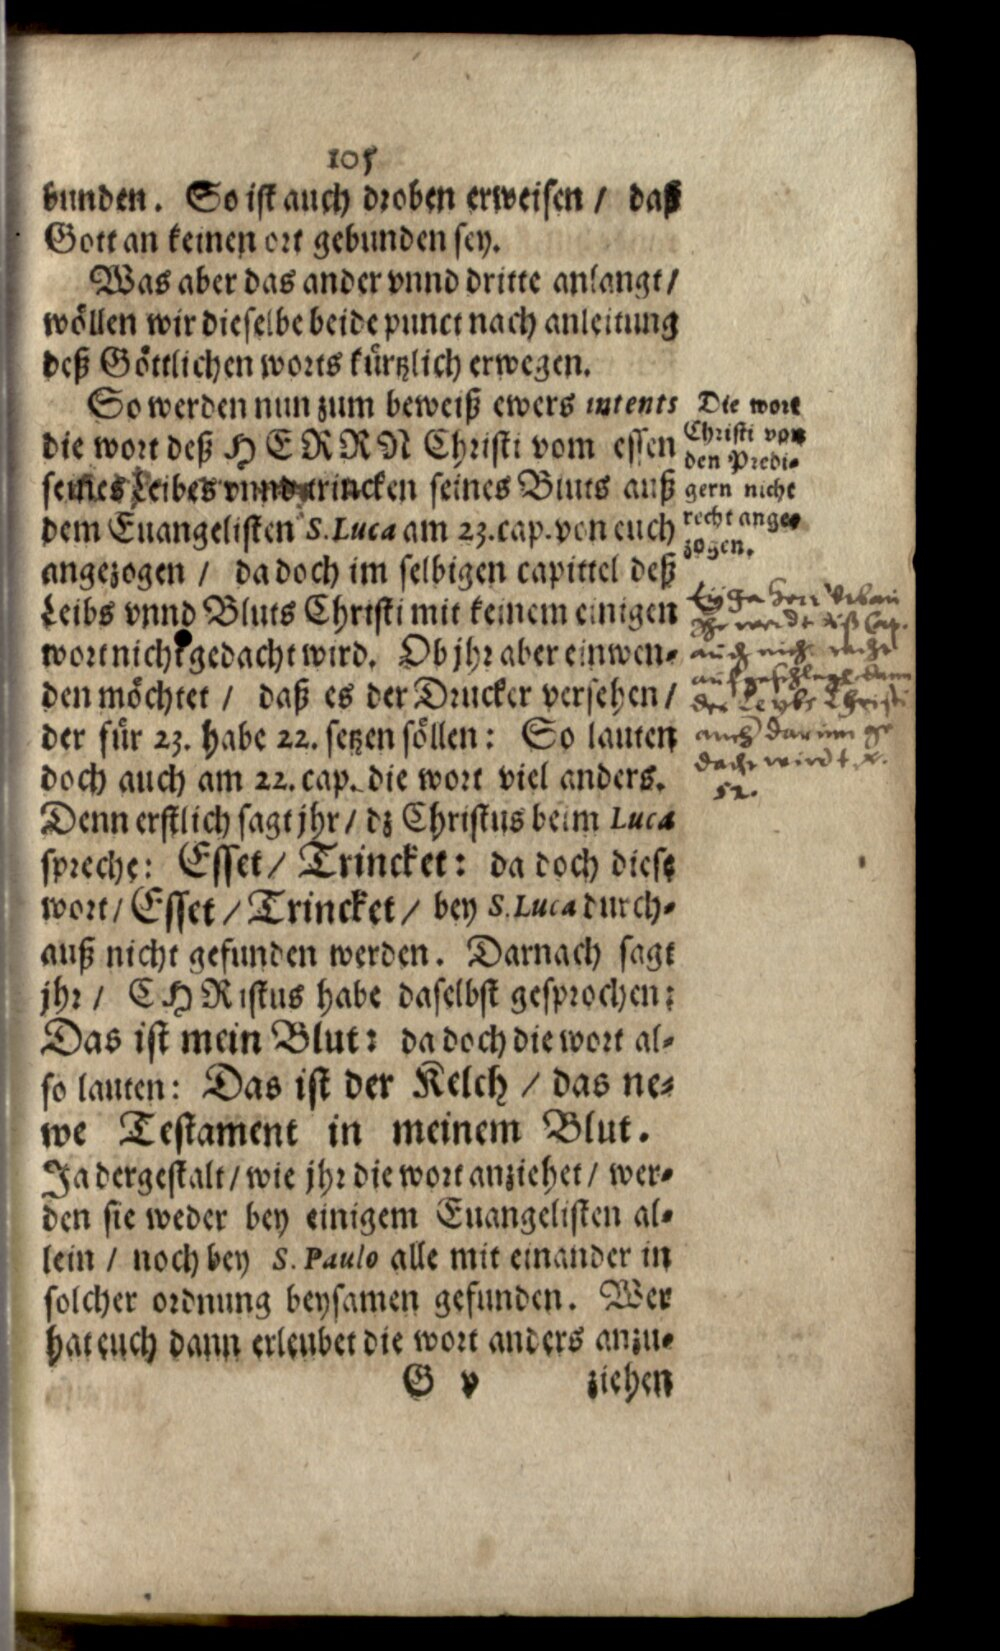 105
bunden. So ist auch droben erweisen / daß
Gott an keinen ort gebunden sey.
Was aber das ander vnnd dritte anlangt /
wöllen wir dieselbe beide punct nach anleitung
deß Göttlichen worts kürtzlich erwegen.
So werden nun zum beweiß ewers intents
die wort deß HERRN Christi vom essen
seines Leibes vnnd trincken seines Bluts auß
dem Euangelisten S. Luca am 23. cap. von euch
angezogen / da doch im selbigen capittel deß
Leibs vnnd Bluts Christi mit keinem einigen
wort nicht gedacht wird. Ob jhr aber einwen-
den möchtet / daß es der Drucker versehen /
der für 23. habe 22. setzen söllen: So lauten
doch auch am 22. cap. die wort viel anders.
Denn erstlich sagt jhr / dz Christus beim Luca
spreche: Esset / Trincket: da doch diese
wort / Esset / Trincket / bey S. Luca durch-
auß nicht gefunden werden. Darnach sagt
jhr / CHRistus habe daselbst gesprochen:
Das ist mein Blut: da doch die wort al-
so lauten: Das ist der Kelch / das ne-
we Testament in meinem Blut.
Ja dergestalt / wie jhr die wort anziehet / wer-
den sie weder bey einigem Euangelisten al-
lein / noch bey S. Paulo alle mit einander in
solcher ordnung beysamen gefunden. Wer
hat euch dann erleubet die wort anders anzu-
G v ziehen
Die wort
Christi von
den Predi-
gern nicht
recht ange-
zogen.
Ey Ja Herr Urban
auch nicht recht
aufgeschlagen dann
des Leybs Christi
auch darinn ge
dacht wirdt
52.